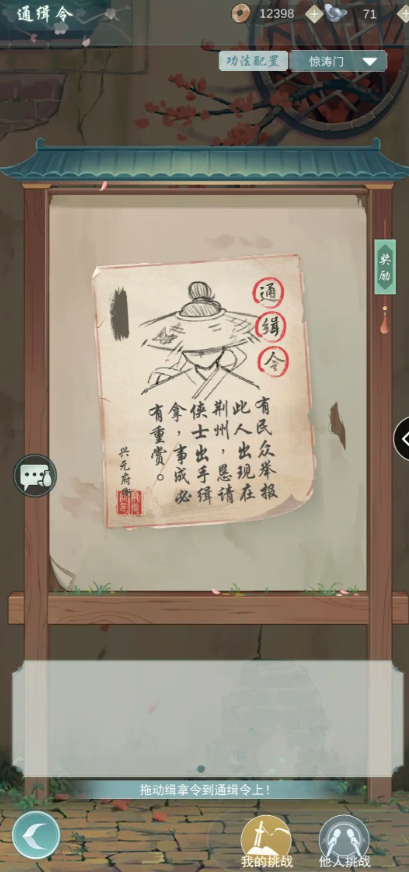 通缉令
12398
71
功法配置
惊涛门
奖励
通缉令
有民众举报
此人出现在
荆州，恳请
侠士出手缉
拿，事成必
有重赏。
兴元府衙
拖动缉拿令到通缉令上！
我的挑战
他人挑战